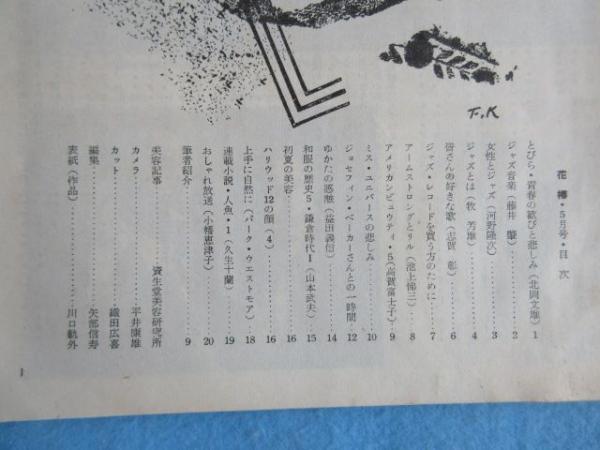 F.K
花椿・5月号・目次
とびら・青春の歓びと悲しみ(北岡文雄)1
ジャズ音楽(藤井肇)2
女性とジャズ(河野隆次)3
ジャズとは(牧芳雄)4
皆さんの好きな歌(志賀彰)6
ジャズ・レコードを買う方のために………7
アームストロングとリル(池上悌三)8
アメリカンビュウティ・5(高賀富士子)9
ミス・ユニバースの悲しみ………10
ジョセフィン・ベーカーさんとの一時間………12
ゆかたの感触(益田義信)………14
和服の歴史5・鎌倉時代Ⅰ(山本武夫)15
初夏の美容………16
ハリウッド12の顔(4)………16
上手に自然に(パーク・ウエストモア)18
連載小説・人魚・1(久生十蘭)………19
おしゃれ放送(小幡恵津子)………20
筆者紹介………9
美容記事………資生堂美容研究所
カメラ………平井康雄
カット………織田広喜
編集………矢部信寿
表紙(作品)………川口軌外
1